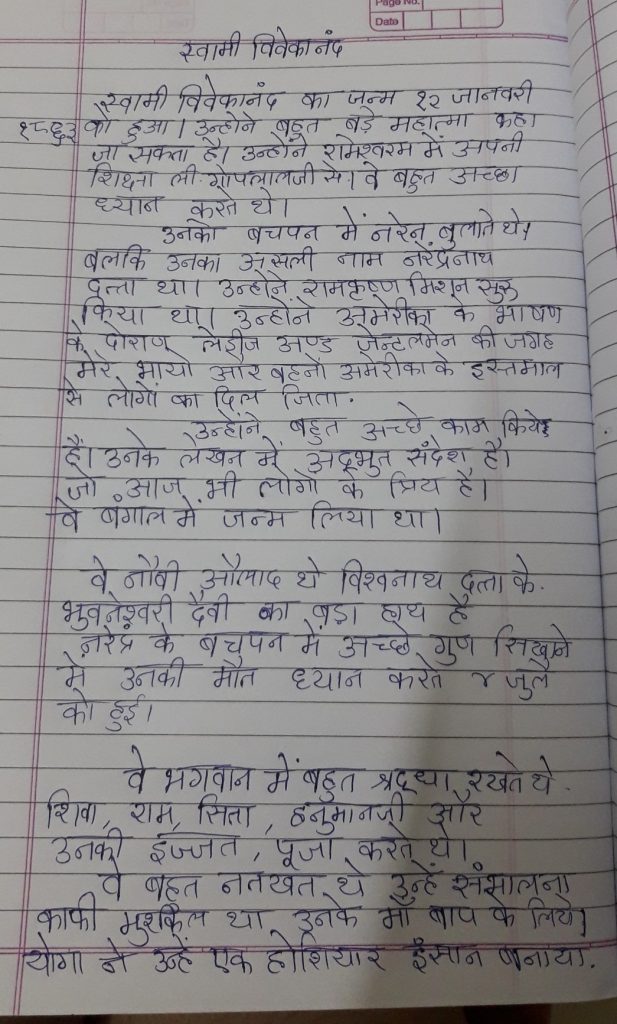 Page No.
Date
स्वामी विवेकानंद
स्वामी विवेकानंद का जन्म १२ जानवरी
१८६३ को हुआ। उन्होने बहूत बडे महात्मा कहा
जा सकता है। उन्होंने रामेश्वरम में अपनी
शिक्षा ली गोपलालजी से। वे बहुत अच्छा
ध्यान करते थे।
उनको बचपन में नरेन बुलाते थे।
बलकि उनका असली नाम नरेंद्रनाथ
दत्ता था। उन्होंने रामकृष्ण मिशन सुरु
किया था। उन्होंने अमेरीका के भाषण
के दोराण लेडीज अण्ड जेन्टलमेन की जगह
मेरे भायो और बहनों अमेरीका के इस्तमाल
से लोगों का दिल जिता.
उन्होंने बहुत अच्छे काम किये
है। उनके लेखन में अद्भुत संदेश है।
जो आज भी लोगो के प्रिय है।
वे बंगाल मे जन्म लिया था।
वे नौवी औलाद थे विश्वनाथ दत्ता के.
भुवनेश्वरी देवी का बडा हाथ है
नरेंद्र के बचपन में अच्छे गुण सिखाने
मे उनकी मौत ध्यान करते ४ जुलै
को हुई।
वे भगवान में बहुत श्रद्धा रखते थे.
शिवा, राम, सिता, हनुमानजी और
उनकी इज्जत, पूजा करते थे।
वे बहुत नतखत थे उन्हें संभालना
काफी मुशकिल था उनके माँ बाप के लिये।
योगा ने उन्हें एक होशियार इंसान बनाया.